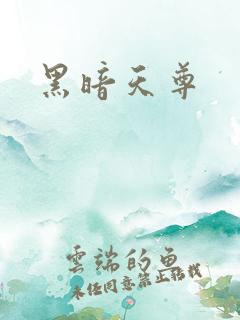 黑暗天尊
雲端的魚
未經同意禁止轉載